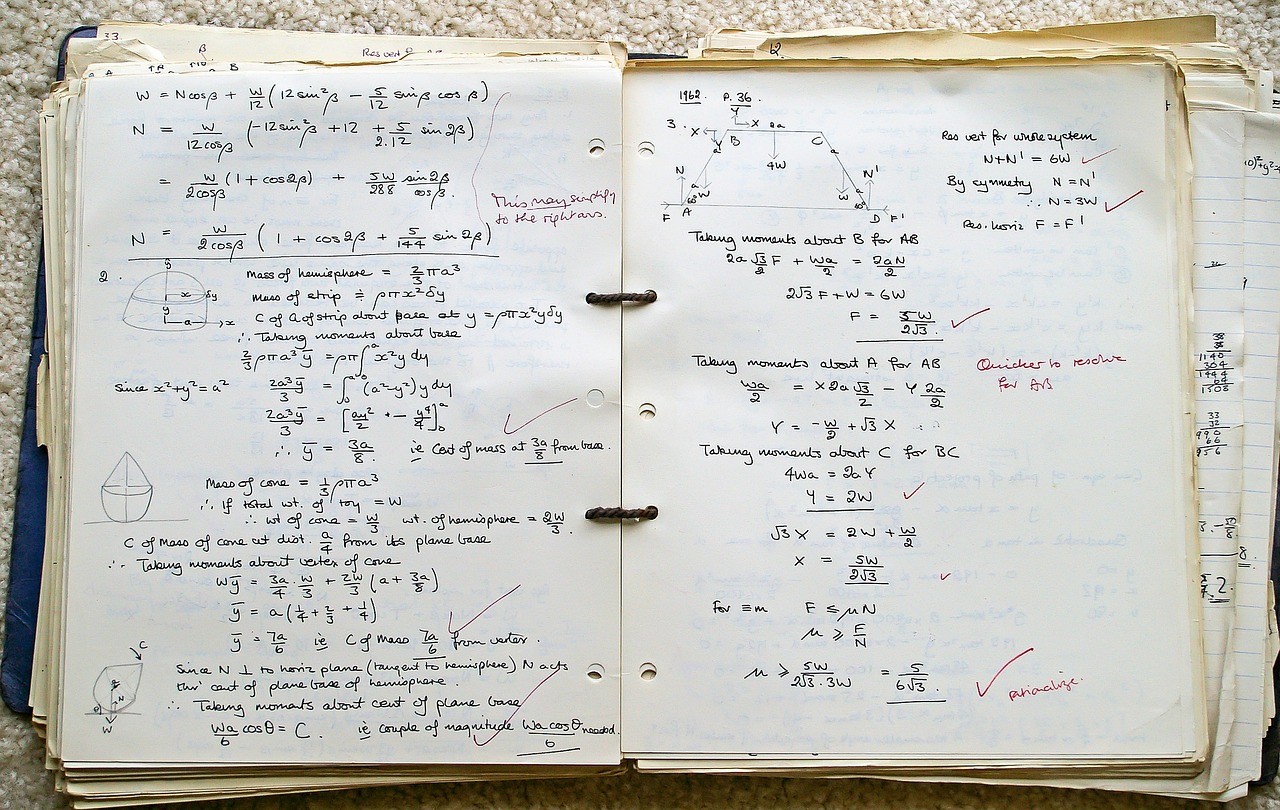 33.
β
Res vert
A
B
W = N cos β + W/12 (12 sin²β − 5/12 sin β cos β)
N = W/12cosβ (−12 sin²β + 12 + 5/2.12 sin 2β)
= W/2cosβ (1 + cos 2β) + 5W/288 sin 2β/cos β.
This may simplify
to the right ans.
N = W/2cosβ (1 + cos 2β + 5/144 sin 2β)
2.
y
x
δy
y
a
x
Mass of hemisphere = 2/3 πa³
Mass of strip ≑ ρπx²δy
C of G of strip about base at y = ρπx²yδy
∴ Taking moments about base
2/3 ρπa³ȳ = ρπ∫₀ᵃ x²y dy
Since x²+y²=a² 2a³ȳ/3 = ∫₀ᵃ (a²−y²) y dy
2a³ȳ/3 = [ay²/2 − y⁴/4]₀ᵃ
∴ ȳ = 3a/8 ie Cent of mass at 3a/8 from base.
Mass of cone = 1/3 ρπa³
∴ If total wt. of toy = W
∴ wt of cone = W/3 wt. of hemisphere = 2W/3.
C of Mass of cone at dist. a/4 from its plane base
∴ Taking moments about vertex of cone
Wȳ = 3a/4 · W/3 + 2W/3 (a + 3a/8)
ȳ = a(1/4 + 2/3 + 1/4)
ȳ = 7a/6 ie C of Mass 7a/6 from vertex.
C
N
θ
W
Since N ⊥ to horiz plane (tangent to hemisphere) N acts
thro' cent of plane base of hemisphere.
∴ Taking moments about cent of plane base
Wa/6 cos θ = C. ie couple of magnitude Wa cos θ/6 needed.
12.
1962. P. 36.
3.
Y
X
X
2a
B
C
Y
a
a
4W
N
a
W
W
a
N'
60°
60°
F
A
D
F'
Res vert for whole system
N+N' = 6W
By symmetry N = N'
∴ N = 3W
Res. horiz F = F'
Taking moments about B for AB
2a √3/2 F + Wa/2 = 2aN/2
2√3 F + W = 6W
F = 5W/2√3.
Taking moments about A for AB
Quicker to resolve
for AB
Wa/2 = X 2a √3/2 − Y 2a/2
Y = −W/2 + √3 X
Taking moments about C for BC
4Wa = 2aY
Y = 2W
√3 X = 2W + W/2
X = 5W/2√3
For ≡m F ≤ μN
μ ≥ F/N
μ ≥ 5W/2√3.3W = 5/6√3.
rationalize.
38
38
1140
304
1444
64
1508
33
32
990
66
956
8.
2.